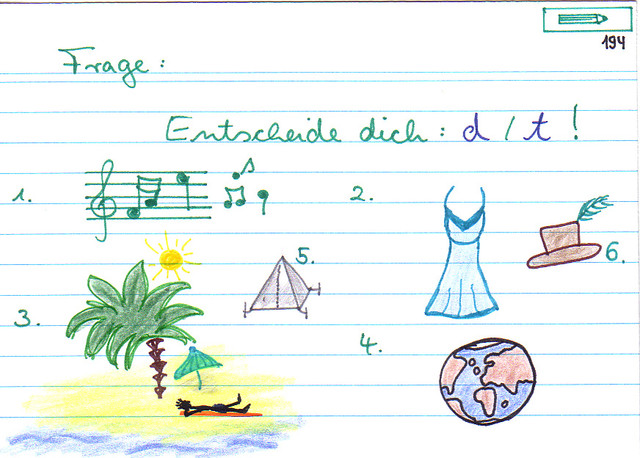 194
Frage:
Entscheide dich: d / t !
1.
2.
5.
6.
3.
4.